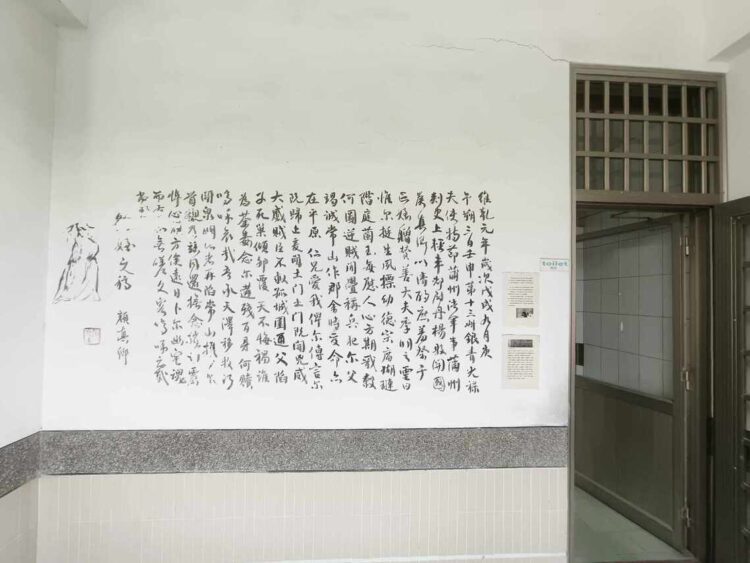 維乾元年歲次戊戌九月庚
午朔三日壬申第十三州銀青光祿
夫使持節蒲州諸軍事蒲州
刺史上輕車都尉丹楊開國
侯真卿以清酌庶羞祭于
亡姪贈贊善大夫季明之靈曰
惟尔挺生夙標幼德宗廟瑚璉
階庭蘭玉每慰人心方期戩穀
何圖逆賊間釁稱兵犯尔父
竭诚常山作郡余時受命亦
在平原仁兄愛我俾尔傳言尔
既歸止爰開土門土門既開兇威
大蹙賊臣不救孤城圍逼父陷
子死巢傾卵覆天不悔禍誰
為荼毒念尔遘殘百身何贖
嗚呼哀哉吾承天澤移牧河
關泉明比者再陷常山攜尔
首櫬及茲同還撫念摧切震
悼心方俟遠日卜尔幽宅魂
而有知無嗟久客嗚呼哀哉
尚饗
祭姪文稿
顏真卿
toilet